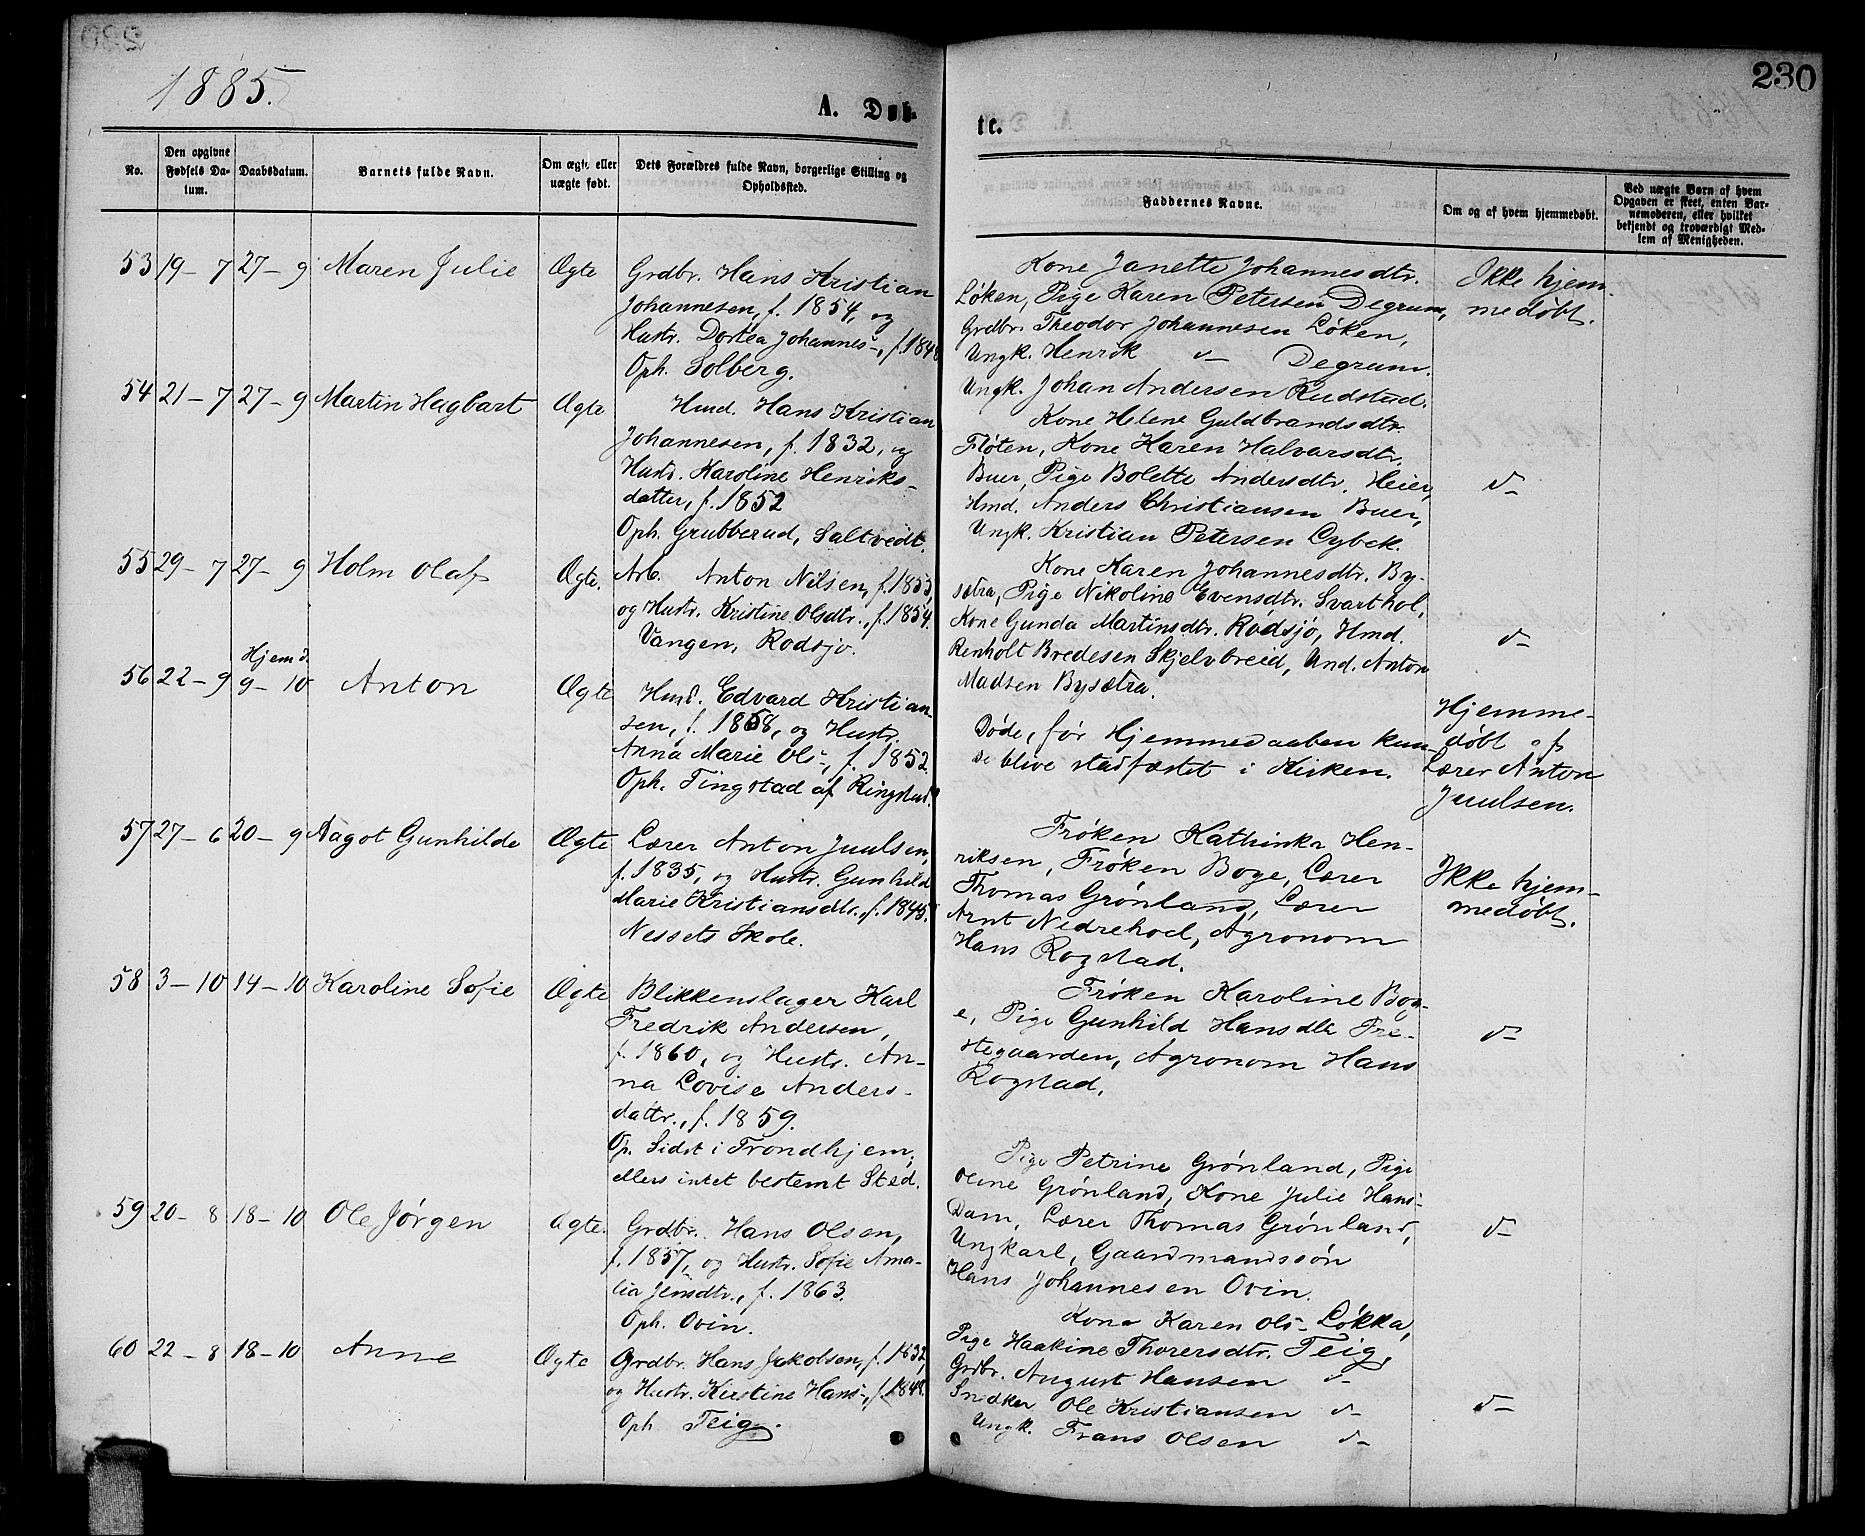 1885.
230
A. Døb-
te.
No.
Den opgivne
Fødsels Da-
tum.
Daabsdatum.
Barnets fulde Navn.
Om ægte eller
uægte født.
Dets Forældres fulde Navn, borgerlige Stilling og
Opholdssted.
Faddernes Navne.
Om og af hvem hjemmedøbt.
Ved uægte Børn af hvem
Opgaven er skeet, enten Bar-
nemoderen, eller hvilket
bekjendt og troværdigt Med-
lem af Menigheden.
53 19-7 27-9 Maren Julie Ægte
Grdbr. Hans Kristian
Johannesen, f. 1854, og
Hustr. Dortea Johannes-, f. 184
Oph. Solberg.
Kone Janette Johannesdtr.
Løken, Pige Karen Petersen Degrum,
Grdbr. Theodor Johannesen Løken,
Ungk. Henrik d- Degrum.
Ungk. Johan Andersen Rudstud.
Ikke hjem-
medøbt.
54 21-7 27-9 Martin Hagbart Ægte
Hmd. Hans Kristian
Johannesen, f. 1832, og
Hustr. Karoline Henriks-
datter, f. 1852
Oph. Grubberud, Saltvedt.
Kone Helene Guldbrandsdtr.
Fløten, Kone Karen Halvarsdtr.
Buer, Pige Bolette Andersdtr. Heier,
Hmd. Anders Christiansen Buer,
Ungk. Kristian Petersen Cybek.
d-
55 29-7 27-9 Holm Olaf Ægte.
Arb. Anton Nilsen, f. 1853,
og Hustr. Kristine Olsdtr., f. 1854.
Vangen, Rodsjø.
Kone Karen Johannesdtr. By-
sætra, Pige Nikoline Evensdtr. Svarthol,
Kone Gunda Martinsdtr. Rodsjø, Hmd.
Renholt Bredesen Skjelvbreid, Und. Anton
Madsen Bysætra.
d-
56 22-9 Hjemd.
9-10 Anton Ægte
Hmd. Edvard Kristian-
sen, f. 1858, og Hustr.
Anna Marie Ols-, f. 1852.
Oph. Tingstad af Ringstad.
Døde, før Hjemmedaaben kun-
de blive stadfæstet i Kirken.
Hjemme-
døbt af
Lærer Anton
Juulsen.
57 27-6 20-9 Aagot Gunhilde Ægte
Lærer Anton Juulsen,
f. 1835, og Hustr. Gunhild
Marie Kristiansdtr., f. 1845.
Nessets Skole.
Frøken Kathinka Hen-
riksen, Frøken Boge, Lærer
Thomas Grønland, Lærer
Arnt Nedrehod, Agronom
Hans Rogstad.
Ikke hjem-
medøbt.
58 3-10 14-10 Karoline Sofie Ægte
Blikkenslager Karl
Fredrik Andersen,
f. 1860, og Hustr. An-
na Lovise Anders-
dattr., f. 1859.
Op. Sidst i Trondhjem,
ellers intet bestemt Sted.
Frøken Karoline Bog-
e, Pige Gunhild Hansdtr Pre-
stegaarden, Agronom Hans
Rogstad.
d-
59 20-8 18-10 Ole Jørgen Ægte.
Grdbr. Hans Olsen,
f. 1857, og Hustr. Sofie Ama-
lia Jensdtr., f. 1863.
Oph. Ovin.
Pige Petrine Grønland, Pige
Oline Grønland, Kone Julie Hans-
Dam, Lærer Thomas Grønland,
Ungkarl, Gaardmandssøn
Hans Johannesen Ovin.
d-
60 22-8 18-10 Anne Ægte
Grdbr. Hans Jakobsen, f. 1832,
og Hustr. Kirstine Hans-, f. 1848.
Oph. Teig.
Kone Karen Ols- Løkka,
Pige Haakine Thorersdtr. Teig,
Grdbr. August Hansen d-
Snedker Ole Kristiansen d-
Ungk. Frans Olsen d-
d-